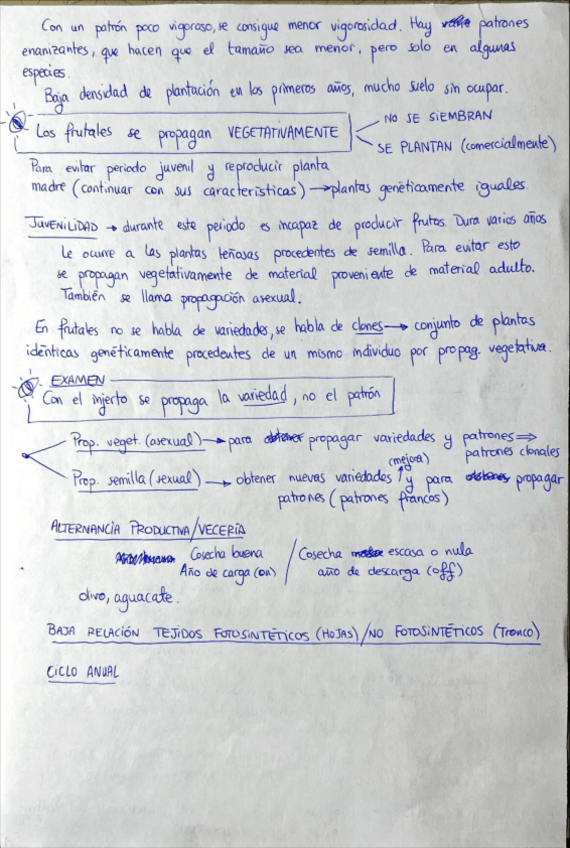 Con un patrón poco vigoroso, se consigue menor vigorosidad. Hay patrones
enanizantes, que hacen que el tamaño sea menor, pero solo en algunas
especies.
Baja densidad de plantación en los primeros años, mucho suelo sin ocupar.
Los frutales se propagan VEGETATIVAMENTE
NO SE SIEMBRAN
SE PLANTAN (comercialmente)
Para evitar periodo juvenil y reproducir planta
madre (continuar con sus características) → plantas genéticamente iguales.
JUVENILIDAD → durante este periodo es incapaz de producir frutos. Dura varios años
Le ocurre a las plantas leñosas procedentes de semilla. Para evitar esto
se propagan vegetativamente de material proveniente de material adulto.
También se llama propagación asexual.
En frutales no se habla de variedades, se habla de clones → conjunto de plantas
idénticas genéticamente procedentes de un mismo individuo por propag. vegetativa.
EXAMEN
Con el injerto se propaga la variedad, no el patrón
Prop. veget. (asexual) → para propagar variedades y patrones ⇒
patrones clonales
(mejora)
Prop. semilla (sexual) → obtener nuevas variedades ↑ y para propagar
patrones (patrones francos)
ALTERNANCIA PRODUCTIVA/VECERÍA
Cosecha buena / Cosecha escasa o nula
Año de carga (on) / año de descarga (off)
olivo, aguacate.
BAJA RELACIÓN TEJIDOS FOTOSINTÉTICOS (HOJAS) / NO FOTOSINTÉTICOS (TRONCO)
CICLO ANUAL